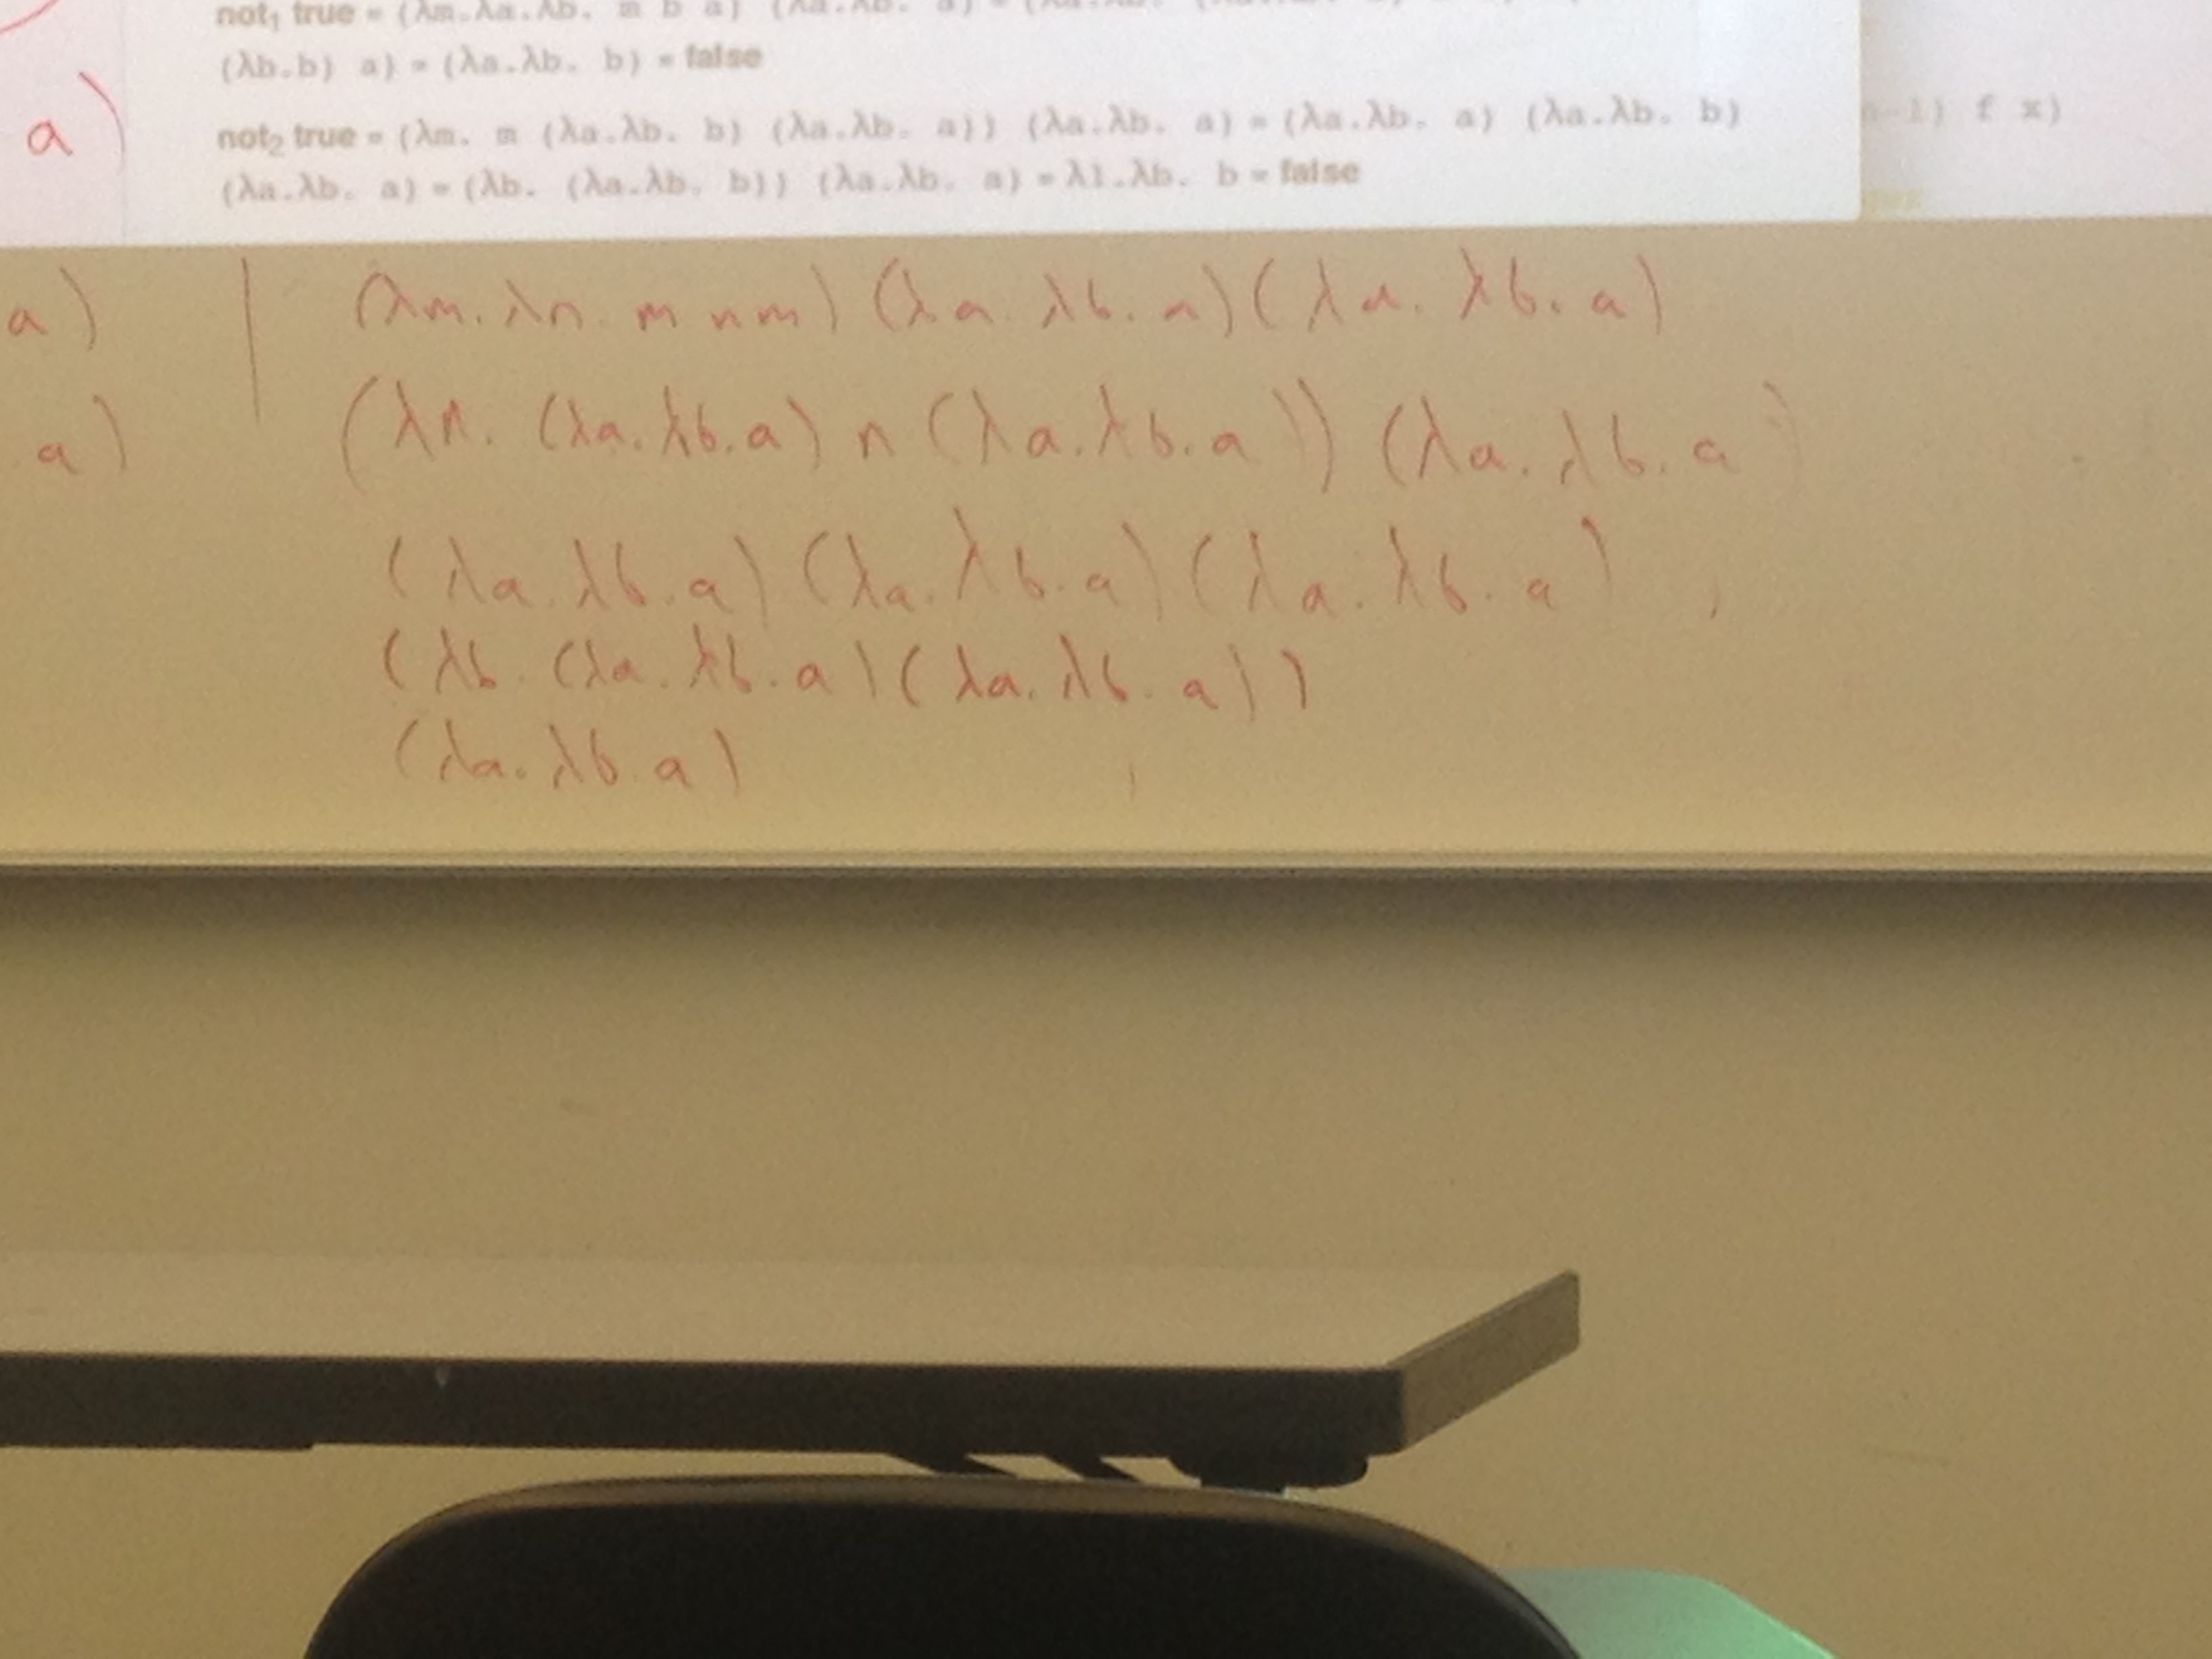 not₁ true = (λm.λa.λb. m b a) (λa.λb. a) =
(λb.b) a) = (λa.λb. b) = false
a)
not₂ true = (λm. m (λa.λb. b) (λa.λb. a)) (λa.λb. a) = (λa.λb. a) (λa.λb. b)
-1) f x)
(λa.λb. a) = (λb. (λa.λb. b)) (λa.λb. a) = λ1.λb. b = false
a)
(λm. λn. m n m) (λa. λb. a) (λa. λb. a)
a)
(λn. (λa. λb. a) n (λa. λb. a)) (λa. λb. a)
(λa. λb. a) (λa. λb. a) (λa. λb. a)
(λb. (λa. λb. a) (λa. λb. a))
(λa. λb. a)